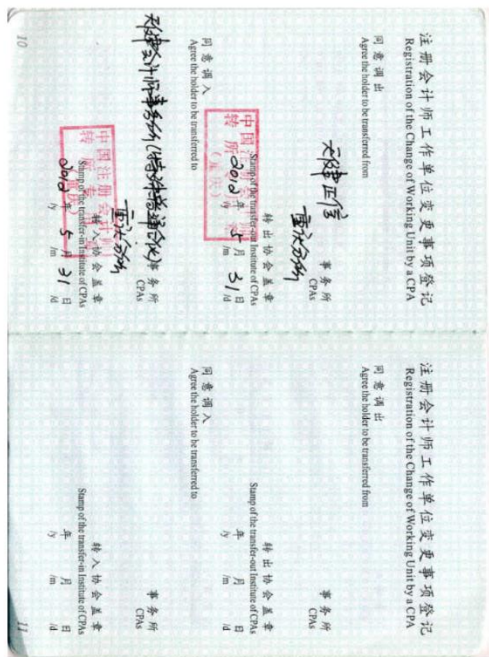 注册会计师工作单位变更事项登记
Registration of the Change of Working Unit by a CPA
同意调出
Agree the holder to be transferred from
天健正信
事务所
CPAs
重庆分所
转出协会盖章
Stamp of the transfer-out Institute of CPAs
2012年5月31日
/y /m /d
同意调入
Agree the holder to be transferred to
天健会计师事务所(特殊普通合伙)事务所
CPAs
重庆分所
转入协会盖章
Stamp of the transfer-in Institute of CPAs
2012年5月31日
/y /m /d
10
注册会计师工作单位变更事项登记
Registration of the Change of Working Unit by a CPA
同意调出
Agree the holder to be transferred from
事务所
CPAs
转出协会盖章
Stamp of the transfer-out Institute of CPAs
年 月 日
/y /m /d
同意调入
Agree the holder to be transferred to
事务所
CPAs
转入协会盖章
Stamp of the transfer-in Institute of CPAs
年 月 日
/y /m /d
11